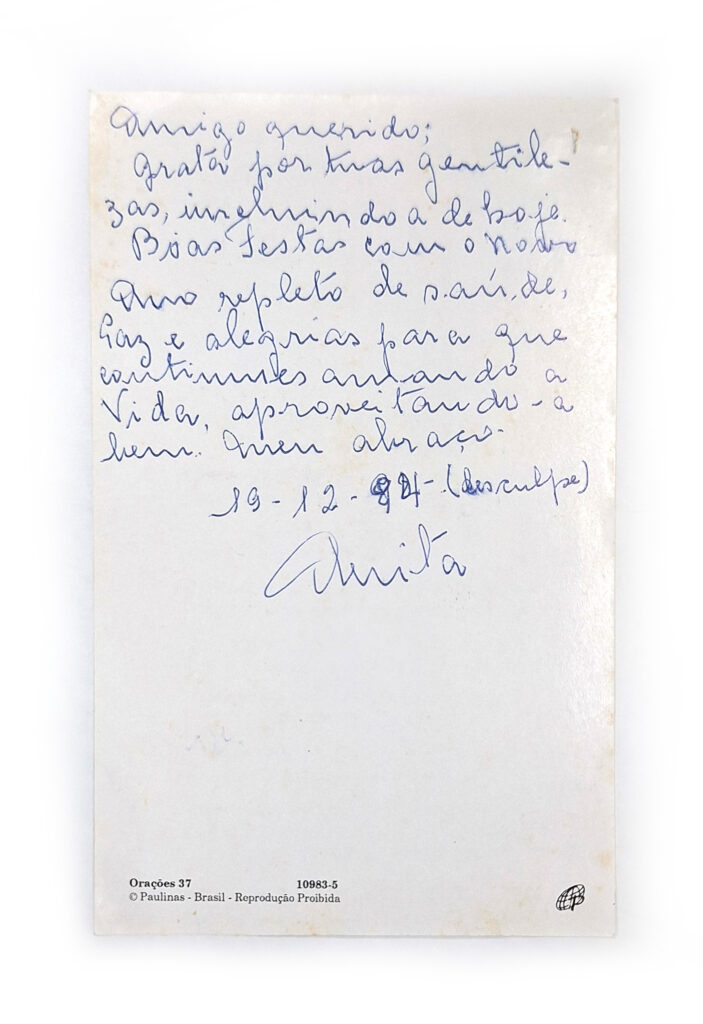 Amigo querido;
Grata por tuas gentile-
zas, incluindo a de hoje.
Boas Festas com o Novo
Ano repleto de saúde,
Paz e alegrias para que
continues amando a
Vida, aproveitando-a
bem. Meu abraço.
19-12-94-(desculpe)
Anita
Orações 37 10983-5
© Paulinas - Brasil - Reprodução Proibida